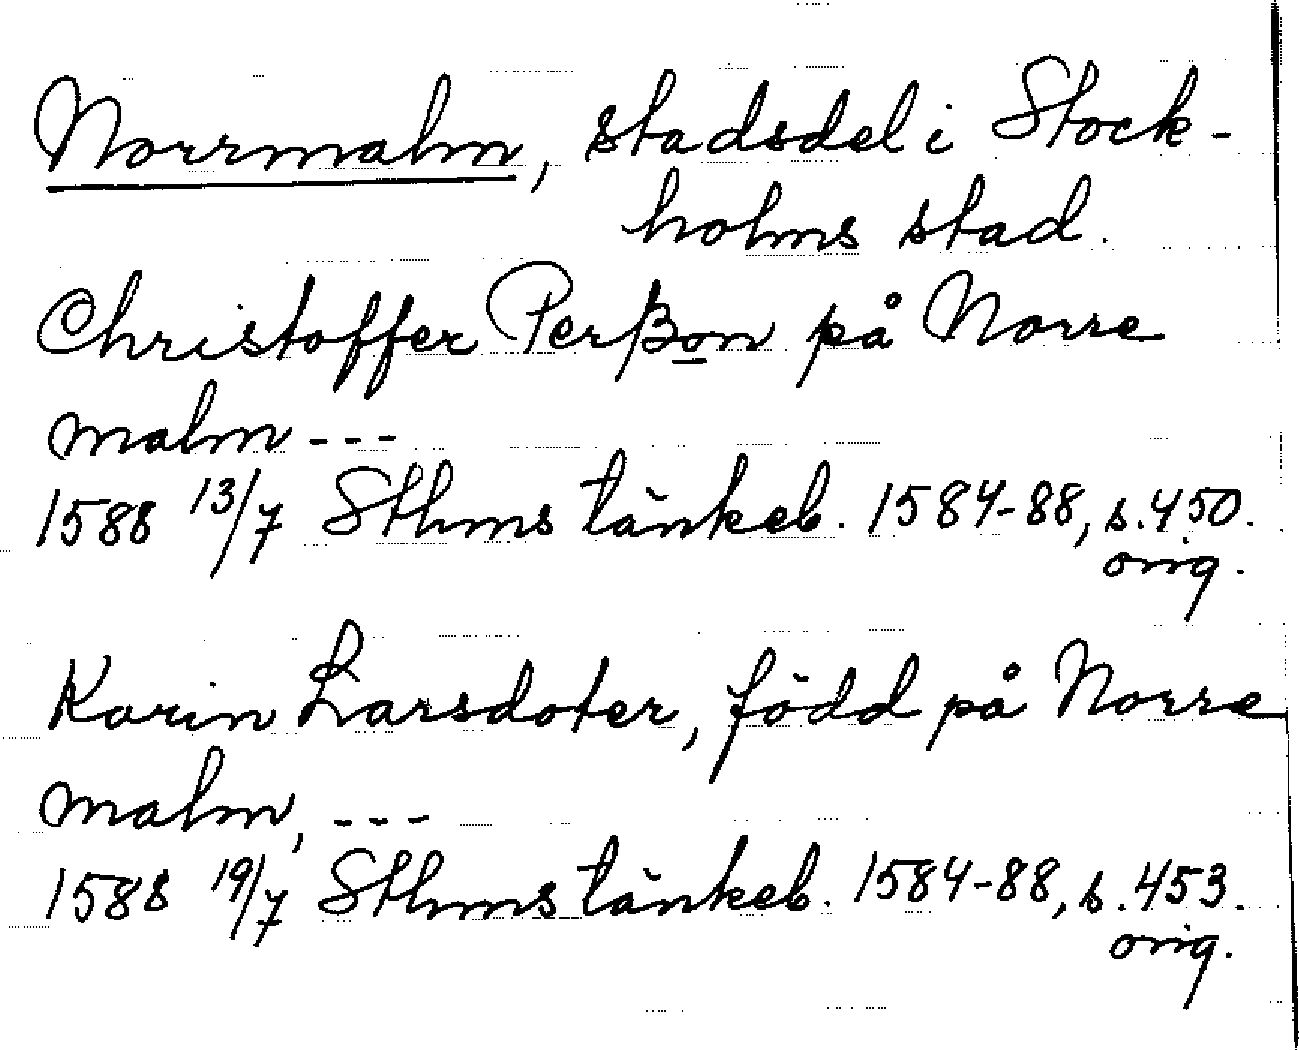 Norrmalm, stadsdel i Stock-
holms stad.
Christoffer Perßon på Norre
malm ---
1588 13/7 Sthms tänkeb. 1584-88, s.450.
orig.
Karin Larsdoter, född på Norre
malm, ---
1588 19/7 Sthms tänkeb. 1584-88, s.453.
orig.